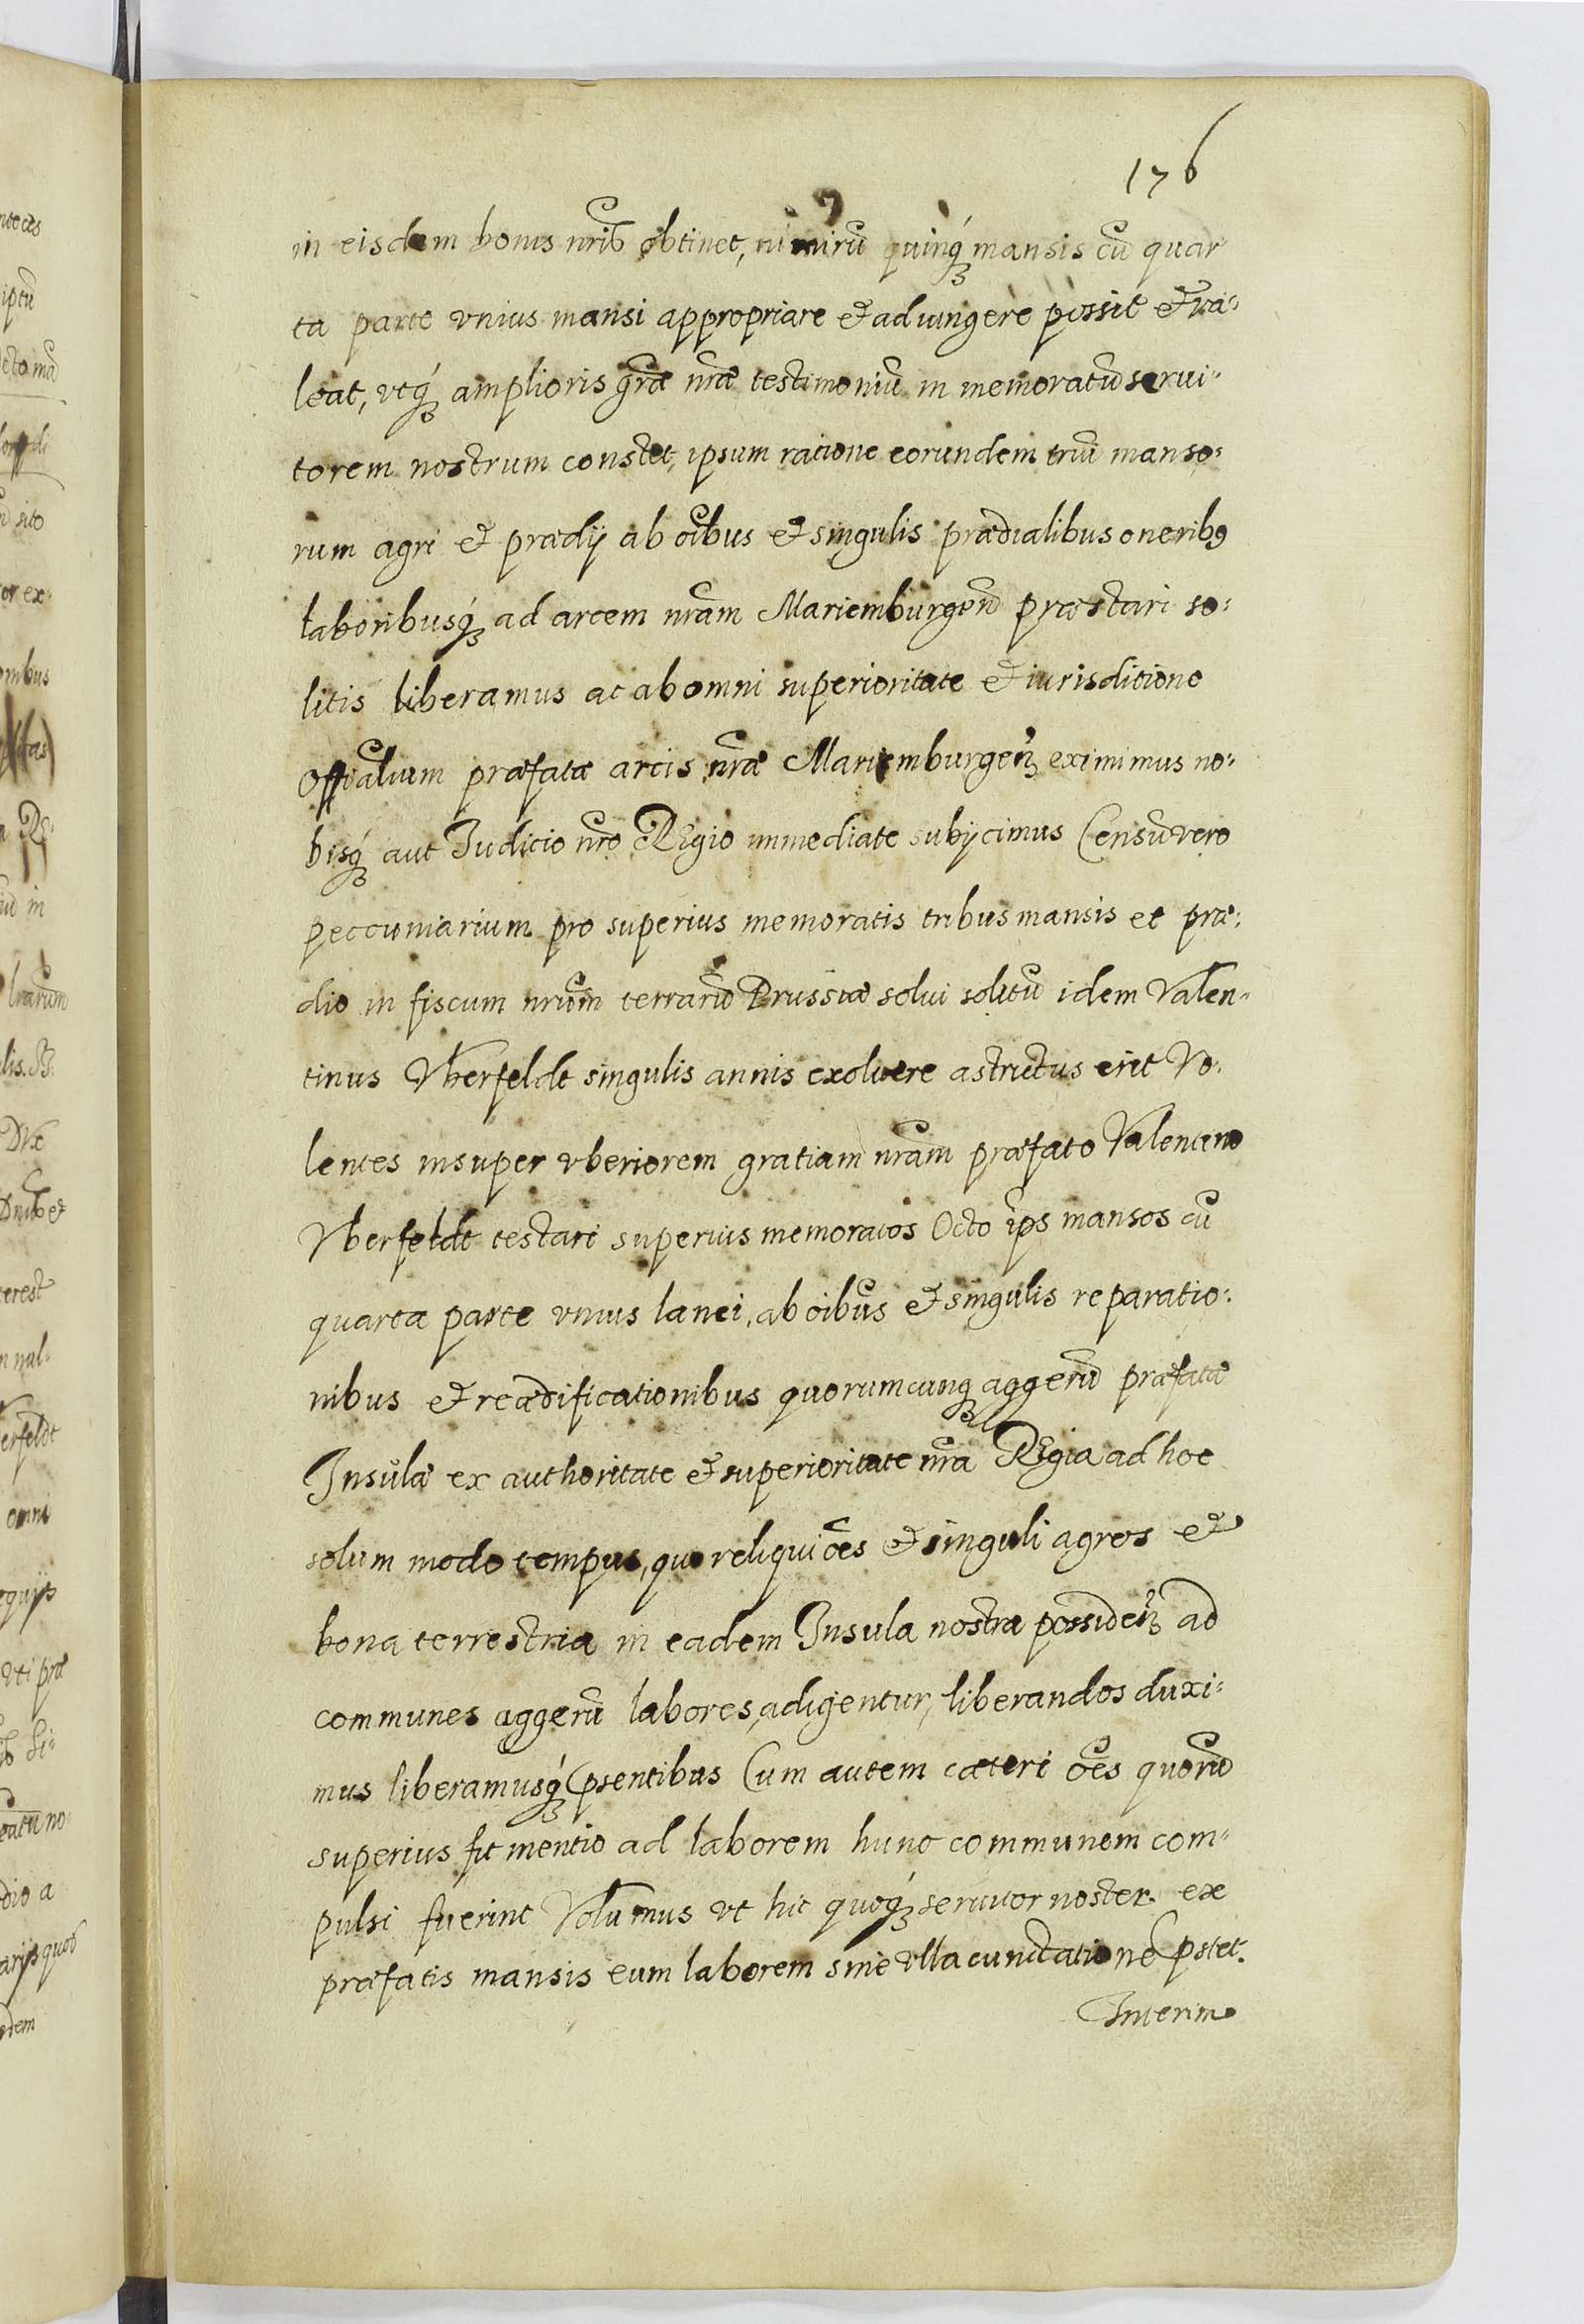 176
in eisdem bonis nrib obtinet, nimirũ quinq́ mansis cũ quar
ta parte vnius mansi appropriare & adiungere possit & va:
leat, vtq́ amplioris grãe nrãe testimoniũ in memoratũ serui:
torem nostrum constet, ipsum ratione eorundem triũ manso:
rum agri & prædij ab oĩbus & singulis prædialibus oneribꝰ
laboribusq́ ad arcem nrãm Mariemburgeñ præstari so:
litis liberamus ac ab omni superioritate & iurisditione
Offiãlium præfatæ arcis nrãe Mariemburgeñ eximimus no:
bisq́ aut Judicio nrõ REgio immediate subijcimus Censũ vero
peccuniarium pro superius memoratis tribus mansis et præ:
dio in fiscum nrũm terrarũ Prussiæ solui solitũ idem Valen:
tinus Vberfeldt singulis annis exoluere astrictus erit Vo:
lentes insuper vberiorem gratiam nrãm præfato Valentino
Vberfeldt testari superius memoratos Octo ip̃s mansos cũ
quarta parte vnius lanei, ab oĩbus & singulis reparatio:
nibus & reædificationibus quorumcunq aggerũ præfatæ
Insulæ ex authoritate & superioritate nrã REgia ad hoc
solum modo tempus, quo reliqui oẽs & singuli agros &
bona terrestria in eadem Insula nostra possideñ ad
communes aggerũ labores, adigentur, liberandos duxi:
mus liberamusq́ pñsentibus Cum autem cæteri oẽs quorũ
superius fit mentio ad laborem hunc communem com:
pulsi fuerint Volumus vt hic quoq́ seruitor noster ex
præfatis mansis eum laborem sine vlla cunctatione pstet.
Interim